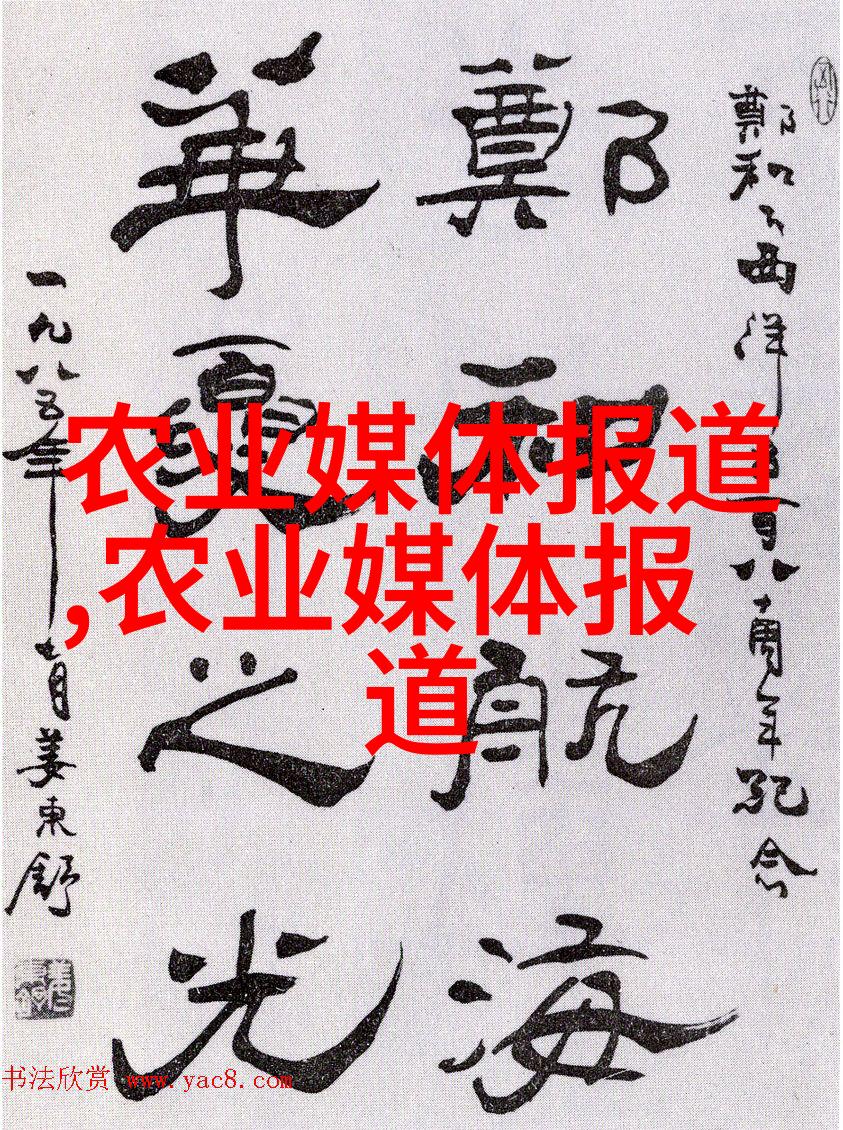 鄭和下西洋五百八十周年紀念
鄭和航海
華夏之光
一九八五年七月姜東舒
农业媒体报道
,农业媒体报
道
书法欣赏 www.yac8.com